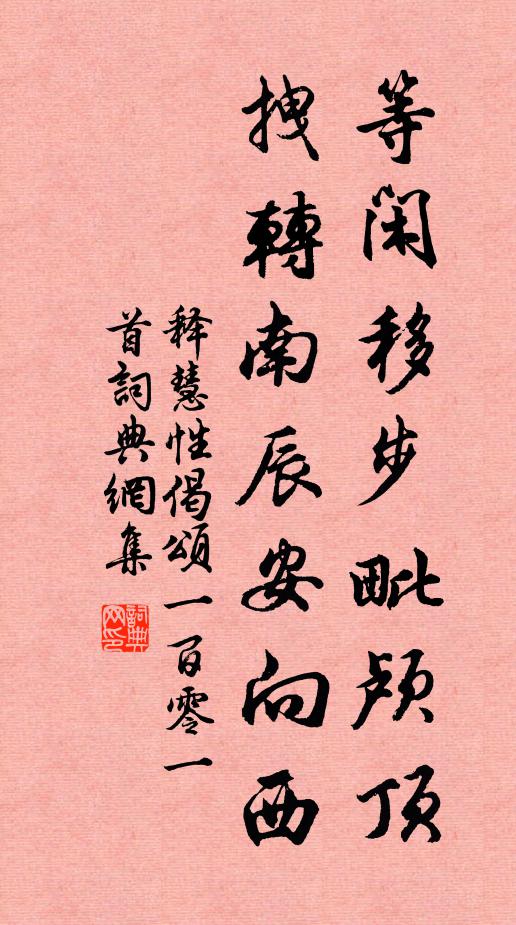 等闲移步毗卢顶
拽轉南辰安向西
释慧性偈頌一百零一
首詞典網集
詞典网印